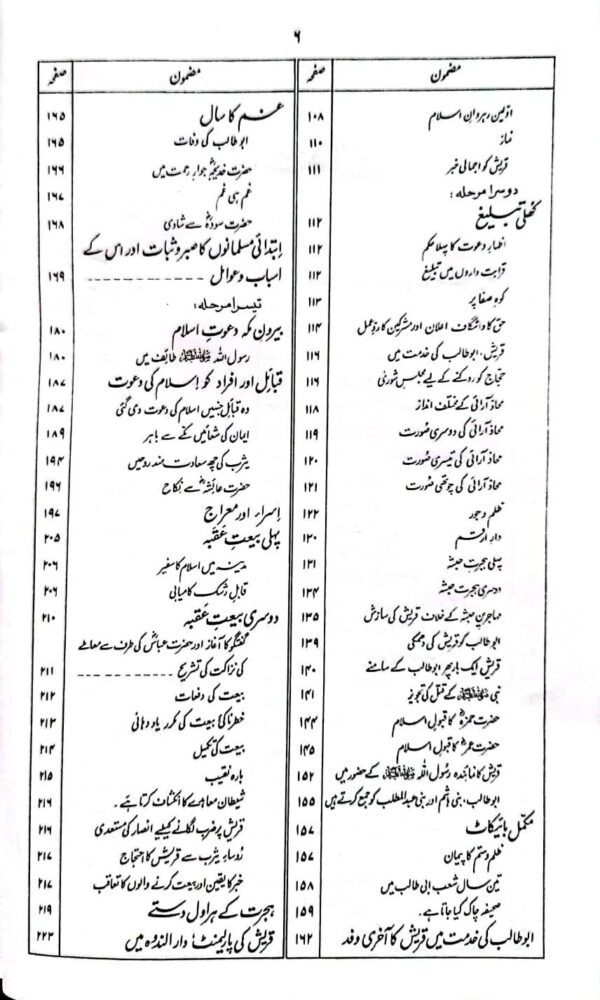 ۶
مضمون صفحہ
اولین رہروانِ اسلام ۱۰۸
نماز ۱۱۰
قریش کو اجمالی خبر ۱۱۱
دوسرا مرحلہ:
کھلی تبلیغ ۱۱۲
اظہارِ دعوت کا پہلا حکم ۱۱۲
قرابت داروں میں تبلیغ ۱۱۲
کوہِ صفا پر ۱۱۳
حق کا واشگاف اعلان اور مشرکین کا ردِّعمل ۱۱۴
قریش، ابوطالب کی خدمت میں ۱۱۶
حجاج کو روکنے کے لیے مجلسِ شوریٰ ۱۱۶
محاذ آرائی کے مختلف انداز ۱۱۸
محاذ آرائی کی دوسری صورت ۱۱۹
محاذ آرائی کی تیسری صورت ۱۲۰
محاذ آرائی کی چوتھی صورت ۱۲۱
ظلم و جور ۱۲۲
دارِ ارقم ۱۳۰
پہلی ہجرتِ حبشہ ۱۳۱
دوسری ہجرتِ حبشہ ۱۳۴
مہاجرینِ حبشہ کے خلاف قریش کی سازش ۱۳۵
ابوطالب کو قریش کی دھمکی ۱۳۹
قریش ایک بار پھر ابوطالب کے سامنے ۱۴۰
نبی ﷺ کے قتل کی تجویز ۱۴۱
حضرت حمزہؓ کا قبولِ اسلام ۱۴۴
حضرت عمرؓ کا قبولِ اسلام ۱۴۵
قریش کا نمائندہ رسول اللہ ﷺ کے حضور میں ۱۵۲
ابوطالب، بنی ہاشم اور بنی عبدالمطلب کو جمع کرتے ہیں ۱۵۵
مکمل بائیکاٹ ۱۵۷
ظلم و ستم کا پیمان ۱۵۷
تین سال شعب ابی طالب میں ۱۵۸
صحیفہ چاک کیا جاتا ہے۔ ۱۵۹
ابوطالب کی خدمت میں قریش کا آخری وفد ۱۶۲
مضمون صفحہ
غم کا سال ۱۶۵
ابوطالب کی وفات ۱۶۵
حضرت خدیجہؓ جوارِ رحمت میں ۱۶۶
غم ہی غم ۱۶۷
حضرت سودہؓ سے شادی ۱۶۸
ابتدائی مسلمانوں کا صبر و ثبات اور اس کے
اسباب و عوامل ------------ ۱۶۹
تیسرا مرحلہ:
بیرونِ مکہ دعوتِ اسلام ۱۸۰
رسول اللہ ﷺ طائف میں ۱۸۰
قبائل اور افراد کو اسلام کی دعوت ۱۸۷
وہ قبائل جنہیں اسلام کی دعوت دی گئی ۱۸۷
ایمان کی شعائیں مکے سے باہر ۱۸۹
یثرب کی چھ سعادت مند روحیں ۱۹۴
حضرت عائشہؓ سے نکاح ۱۹۶
اسراء اور معراج ۱۹۷
پہلی بیعتِ عقبہ ۲۰۵
مدینہ میں اسلام کا سفیر ۲۰۶
قابلِ رشک کامیابی ۲۰۶
دوسری بیعتِ عقبہ ۲۱۰
گفتگو کا آغاز اور حضرت عباسؓ کی طرف سے معاملے
کی نزاکت کی تشریح ------------ ۲۱۱
بیعت کی دفعات ۲۱۲
خطرناکیٔ بیعت کی مکرر یاد دہانی ۲۱۳
بیعت کی تکمیل ۲۱۴
بارہ نقیب ۲۱۵
شیطان معاہدے کا انکشاف کرتا ہے۔ ۲۱۶
قریش پر ضرب لگانے کیلیے انصار کی مستعدی ۲۱۶
رؤساءِ یثرب سے قریش کا احتجاج ۲۱۷
خبر کا یقین اور بیعت کرنے والوں کا تعاقب ۲۱۷
ہجرت کے ہراول دستے ۲۱۹
قریش کی پارلیمنٹ، دار الندوہ میں ۲۲۳